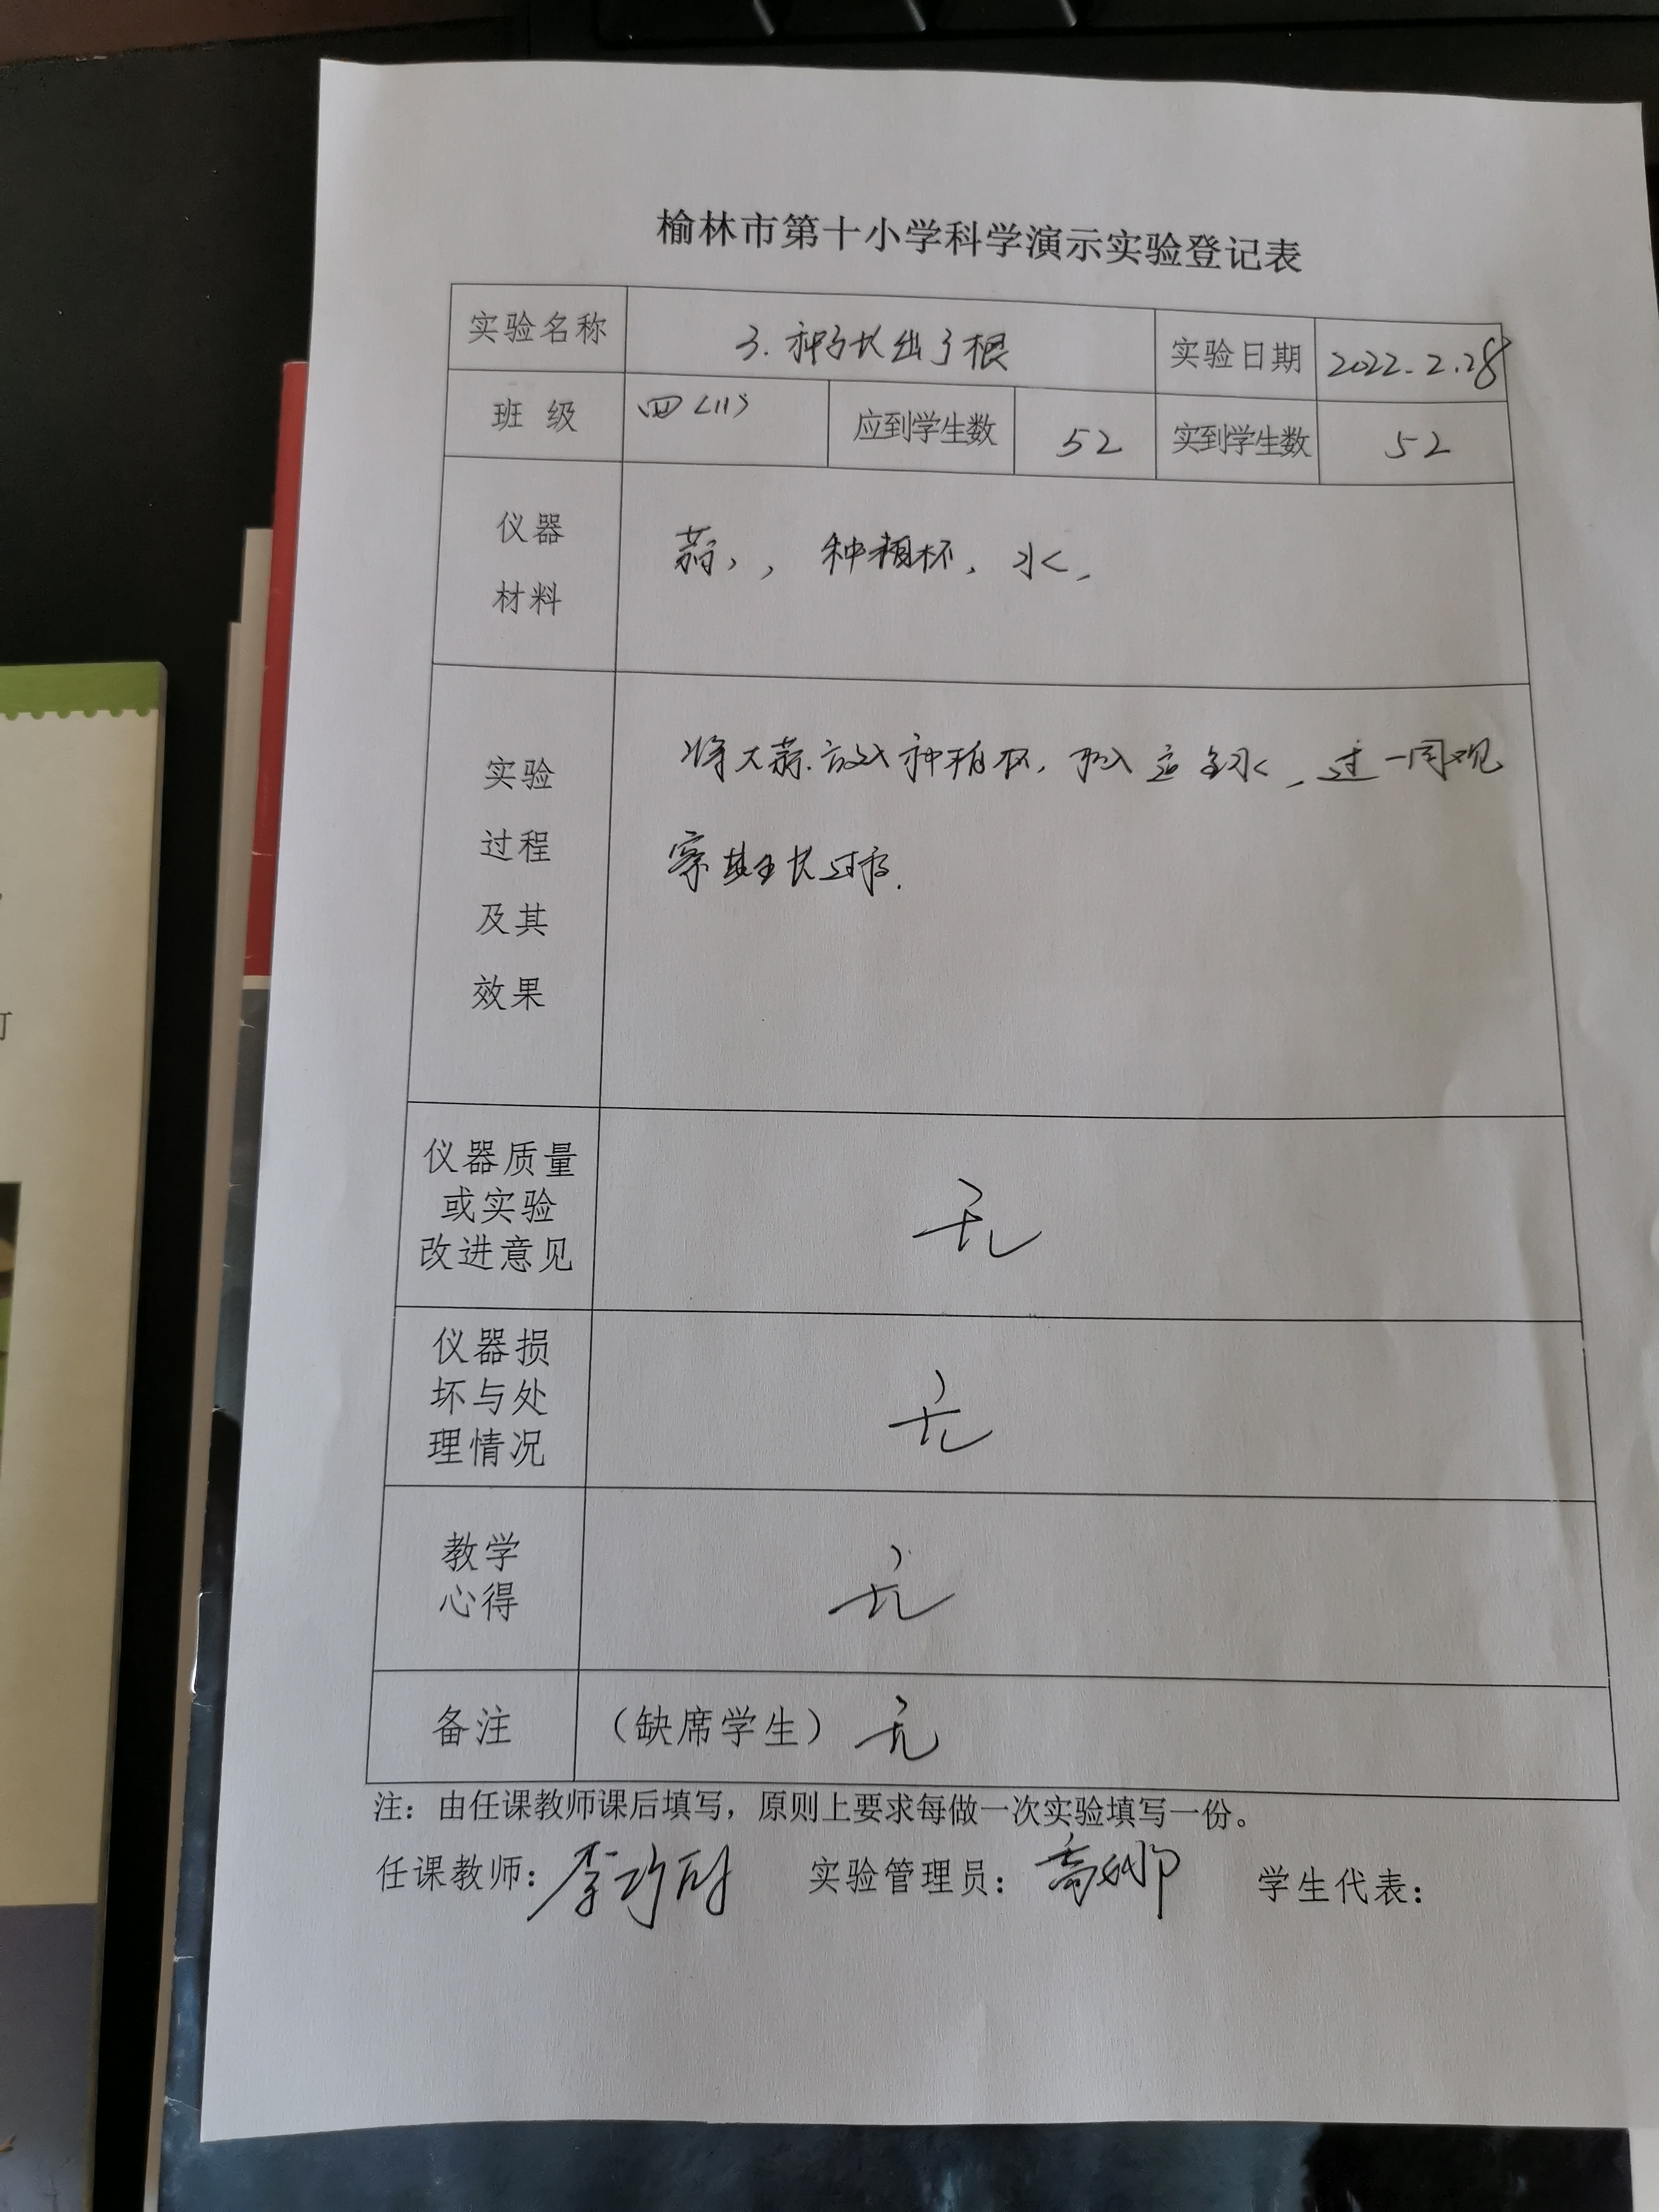 榆林市第十小学科学演示实验登记表
实验名称 3. 种子长出了根 实验日期 2022.2.28
班 级 四(11) 应到学生数 52 实到学生数 52
仪器
材料
蒜,, 种植杯, 水,
实验
过程
及其
效果
将大蒜放入种植杯, 加入适量水, 过一周观
察其生长过程.
仪器质量
或实验
改进意见
无
仪器损
坏与处
理情况
无
教学
心得
无
备注 (缺席学生) 无
注:由任课教师课后填写,原则上要求每做一次实验填写一份。
任课教师: 李 实验管理员: 高娜 学生代表: